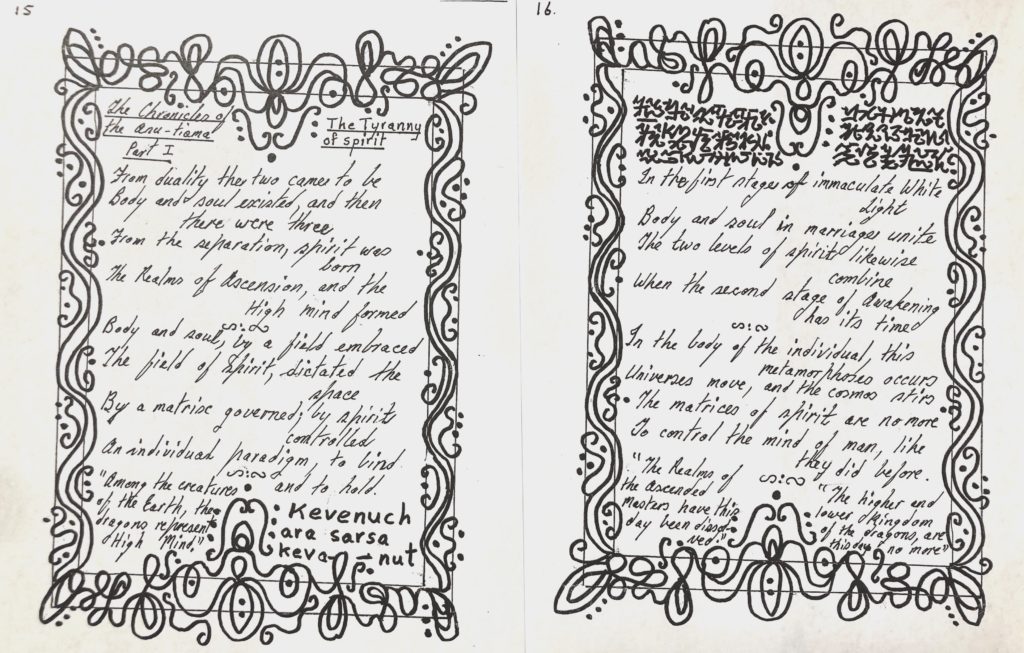 15
The Chronicles of
the Anu-tiama
Part I
The Tyranny
of spirit
From duality the two came to be
Body and soul existed, and then
there were three
From the separation, spirit was
born
The Realms of Ascension, and the
High mind formed
Body and soul, by a field embraced
The field of Spirit, dictated the
space
By a matrix governed; by spirits
controlled
An individual paradigm to bind
and to hold.
"Among the creatures
of the Earth, the
dragons represent
High Mind."
Kevenuch
ara sarsa
keva
nut
16.
In the first stages of immaculate White
Light
Body and soul in marriages unite
The two levels of spirit likewise
combine
When the second stage of Awakening
has its timed
In the body of the individual, this
metamorphoses occurs
Universes move, and the cosmos stirs
The matrices of spirit are no more
To control the mind of man, like
they did before.
"The Realms of
the Ascended
Masters have this
day been dissol-
ved."
"The higher and
lower kingdom
of the dragons, are
this day no more"